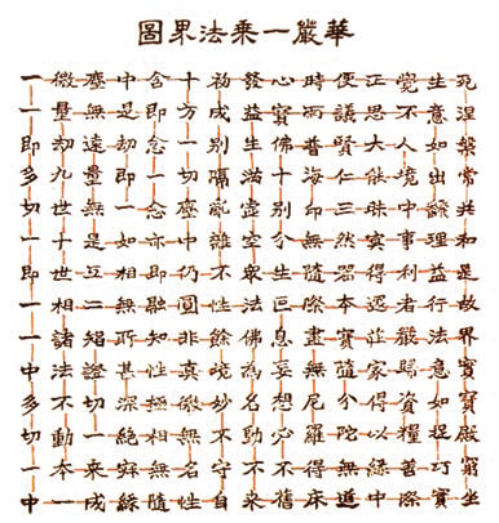 華嚴一乘法界圖
一微塵中含十初發心時便正覺生死
一量無是即方成益寶雨議思不意涅
即劫遠劫念一別生佛普賢大人如槃
多九量即一切隔滿十海仁能境出常
切世無一念塵亂虛別印三昧中繇共
一十是如亦中雜空分無然冥事理和
即世互相即仍不衆生隨器得利益是
一相二無融圓性法叵際本還者行故
一諸智所知非餘佛息盡寶莊嚴法界
中法證甚性真境為妄無隨家歸意實
多不切深極微妙名想尼分得資如寶
切動一絕相無不動必羅陀以糧捉殿
一本来寂無名守不不得無緣善巧窮
中一成緣隨性自来舊床道中際實坐